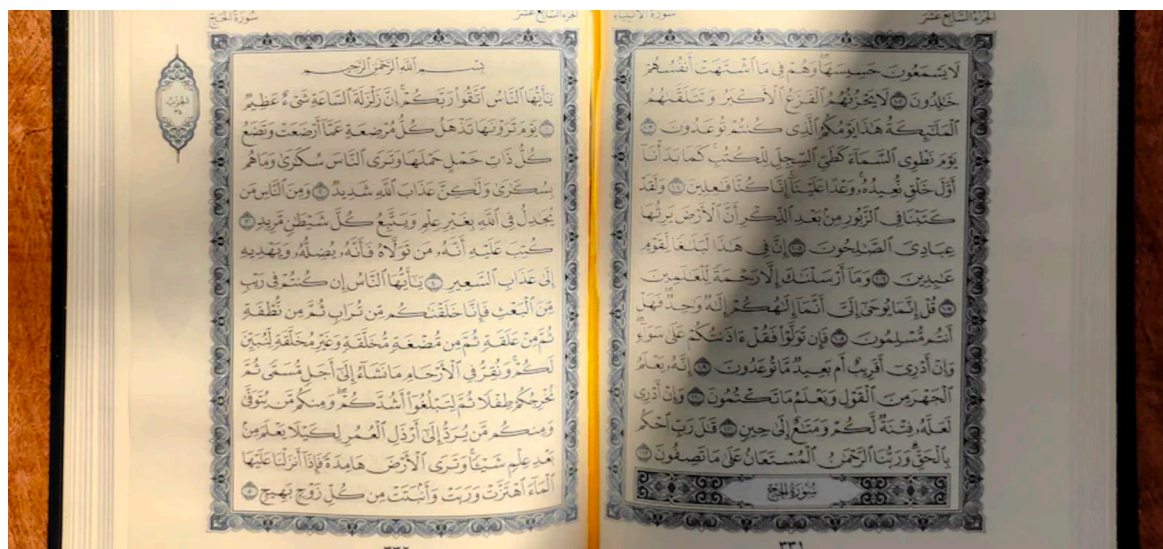 الجزء السابع عشر
سورة الأنبياء
لَا يَسْمَعُونَ حَسِيسَهَا ۖ وَهُمْ فِي مَا ٱشْتَهَتْ أَنفُسُهُمْ
خَٰلِدُونَ ١٠٢ لَا يَحْزُنُهُمُ ٱلْفَزَعُ ٱلْأَكْبَرُ وَتَتَلَقَّىٰهُمُ
ٱلْمَلَٰٓئِكَةُ هَٰذَا يَوْمُكُمُ ٱلَّذِي كُنتُمْ تُوعَدُونَ ١٠٣
يَوْمَ نَطْوِي ٱلسَّمَآءَ كَطَيِّ ٱلسِّجِلِّ لِلْكُتُبِ ۚ كَمَا بَدَأْنَآ
أَوَّلَ خَلْقٍ نُّعِيدُهُۥ ۚ وَعْدًا عَلَيْنَآ ۚ إِنَّا كُنَّا فَٰعِلِينَ ١٠٤ وَلَقَدْ
كَتَبْنَا فِي ٱلزَّبُورِ مِنۢ بَعْدِ ٱلذِّكْرِ أَنَّ ٱلْأَرْضَ يَرِثُهَا
عِبَادِيَ ٱلصَّٰلِحُونَ ١٠٥ إِنَّ فِي هَٰذَا لَبَلَٰغًا لِّقَوْمٍ
عَٰبِدِينَ ١٠٦ وَمَآ أَرْسَلْنَٰكَ إِلَّا رَحْمَةً لِّلْعَٰلَمِينَ
١٠٧ قُلْ إِنَّمَا يُوحَىٰٓ إِلَيَّ أَنَّمَآ إِلَٰهُكُمْ إِلَٰهٌ وَٰحِدٌ ۖ فَهَلْ
أَنتُم مُّسْلِمُونَ ١٠٨ فَإِن تَوَلَّوْا۟ فَقُلْ ءَاذَنتُكُمْ عَلَىٰ سَوَآءٍ ۖ
وَإِنْ أَدْرِيٓ أَقَرِيبٌ أَم بَعِيدٌ مَّا تُوعَدُونَ ١٠٩ إِنَّهُۥ يَعْلَمُ
ٱلْجَهْرَ مِنَ ٱلْقَوْلِ وَيَعْلَمُ مَا تَكْتُمُونَ ١١٠ وَإِنْ أَدْرِي
لَعَلَّهُۥ فِتْنَةٌ لَّكُمْ وَمَتَٰعٌ إِلَىٰ حِينٍ ١١١ قَٰلَ رَبِّ ٱحْكُم
بِٱلْحَقِّ ۗ وَرَبُّنَا ٱلرَّحْمَٰنُ ٱلْمُسْتَعَانُ عَلَىٰ مَا تَصِفُونَ ١١٢
سُورَةُ الحَجِّ
٣٣١
الجزء السابع عشر
سورة الحج
بِسْمِ ٱللَّهِ ٱلرَّحْمَٰنِ ٱلرَّحِيمِ
يَٰٓأَيُّهَا ٱلنَّاسُ ٱتَّقُوا۟ رَبَّكُمْ ۚ إِنَّ زَلْزَلَةَ ٱلسَّاعَةِ شَيْءٌ عَظِيمٌ
١ يَوْمَ تَرَوْنَهَا تَذْهَلُ كُلُّ مُرْضِعَةٍ عَمَّآ أَرْضَعَتْ وَتَضَعُ
كُلُّ ذَاتِ حَمْلٍ حَمْلَهَا وَتَرَى ٱلنَّاسَ سُكَٰرَىٰ وَمَا هُم
بِسُكَٰرَىٰ وَلَٰكِنَّ عَذَابَ ٱللَّهِ شَدِيدٌ ٢ وَمِنَ ٱلنَّاسِ مَن
يُجَٰدِلُ فِي ٱللَّهِ بِغَيْرِ عِلْمٍ وَيَتَّبِعُ كُلَّ شَيْطَٰنٍ مَّرِيدٍ ٣
كُتِبَ عَلَيْهِ أَنَّهُۥ مَن تَوَلَّاهُ فَأَنَّهُۥ يُضِلُّهُۥ وَيَهْدِيهِ
إِلَىٰ عَذَابِ ٱلسَّعِيرِ ٤ يَٰٓأَيُّهَا ٱلنَّاسُ إِن كُنتُمْ فِي رَيْبٍ
مِّنَ ٱلْبَعْثِ فَإِنَّا خَلَقْنَٰكُم مِّن تُرَابٍ ثُمَّ مِن نُّطْفَةٍ
ثُمَّ مِنْ عَلَقَةٍ ثُمَّ مِن مُّضْغَةٍ مُّخَلَّقَةٍ وَغَيْرِ مُخَلَّقَةٍ لِّنُبَيِّنَ
لَكُمْ ۚ وَنُقِرُّ فِي ٱلْأَرْحَامِ مَا نَشَآءُ إِلَىٰٓ أَجَلٍ مُّسَمًّى ثُمَّ
نُخْرِجُكُمْ طِفْلًا ثُمَّ لِتَبْلُغُوٓا۟ أَشُدَّكُمْ ۖ وَمِنكُم مَّن يُتَوَفَّىٰ
وَمِنكُم مَّن يُرَدُّ إِلَىٰٓ أَرْذَلِ ٱلْعُمُرِ لِكَيْلَا يَعْلَمَ مِنۢ
بَعْدِ عِلْمٍ شَيْـًٔا ۚ وَتَرَى ٱلْأَرْضَ هَامِدَةً فَإِذَآ أَنزَلْنَا عَلَيْهَا
ٱلْمَآءَ ٱهْتَزَّتْ وَرَبَتْ وَأَنۢبَتَتْ مِن كُلِّ زَوْجٍۭ بَهِيجٍ ٥
الحزب
٣٤
٣٣٢